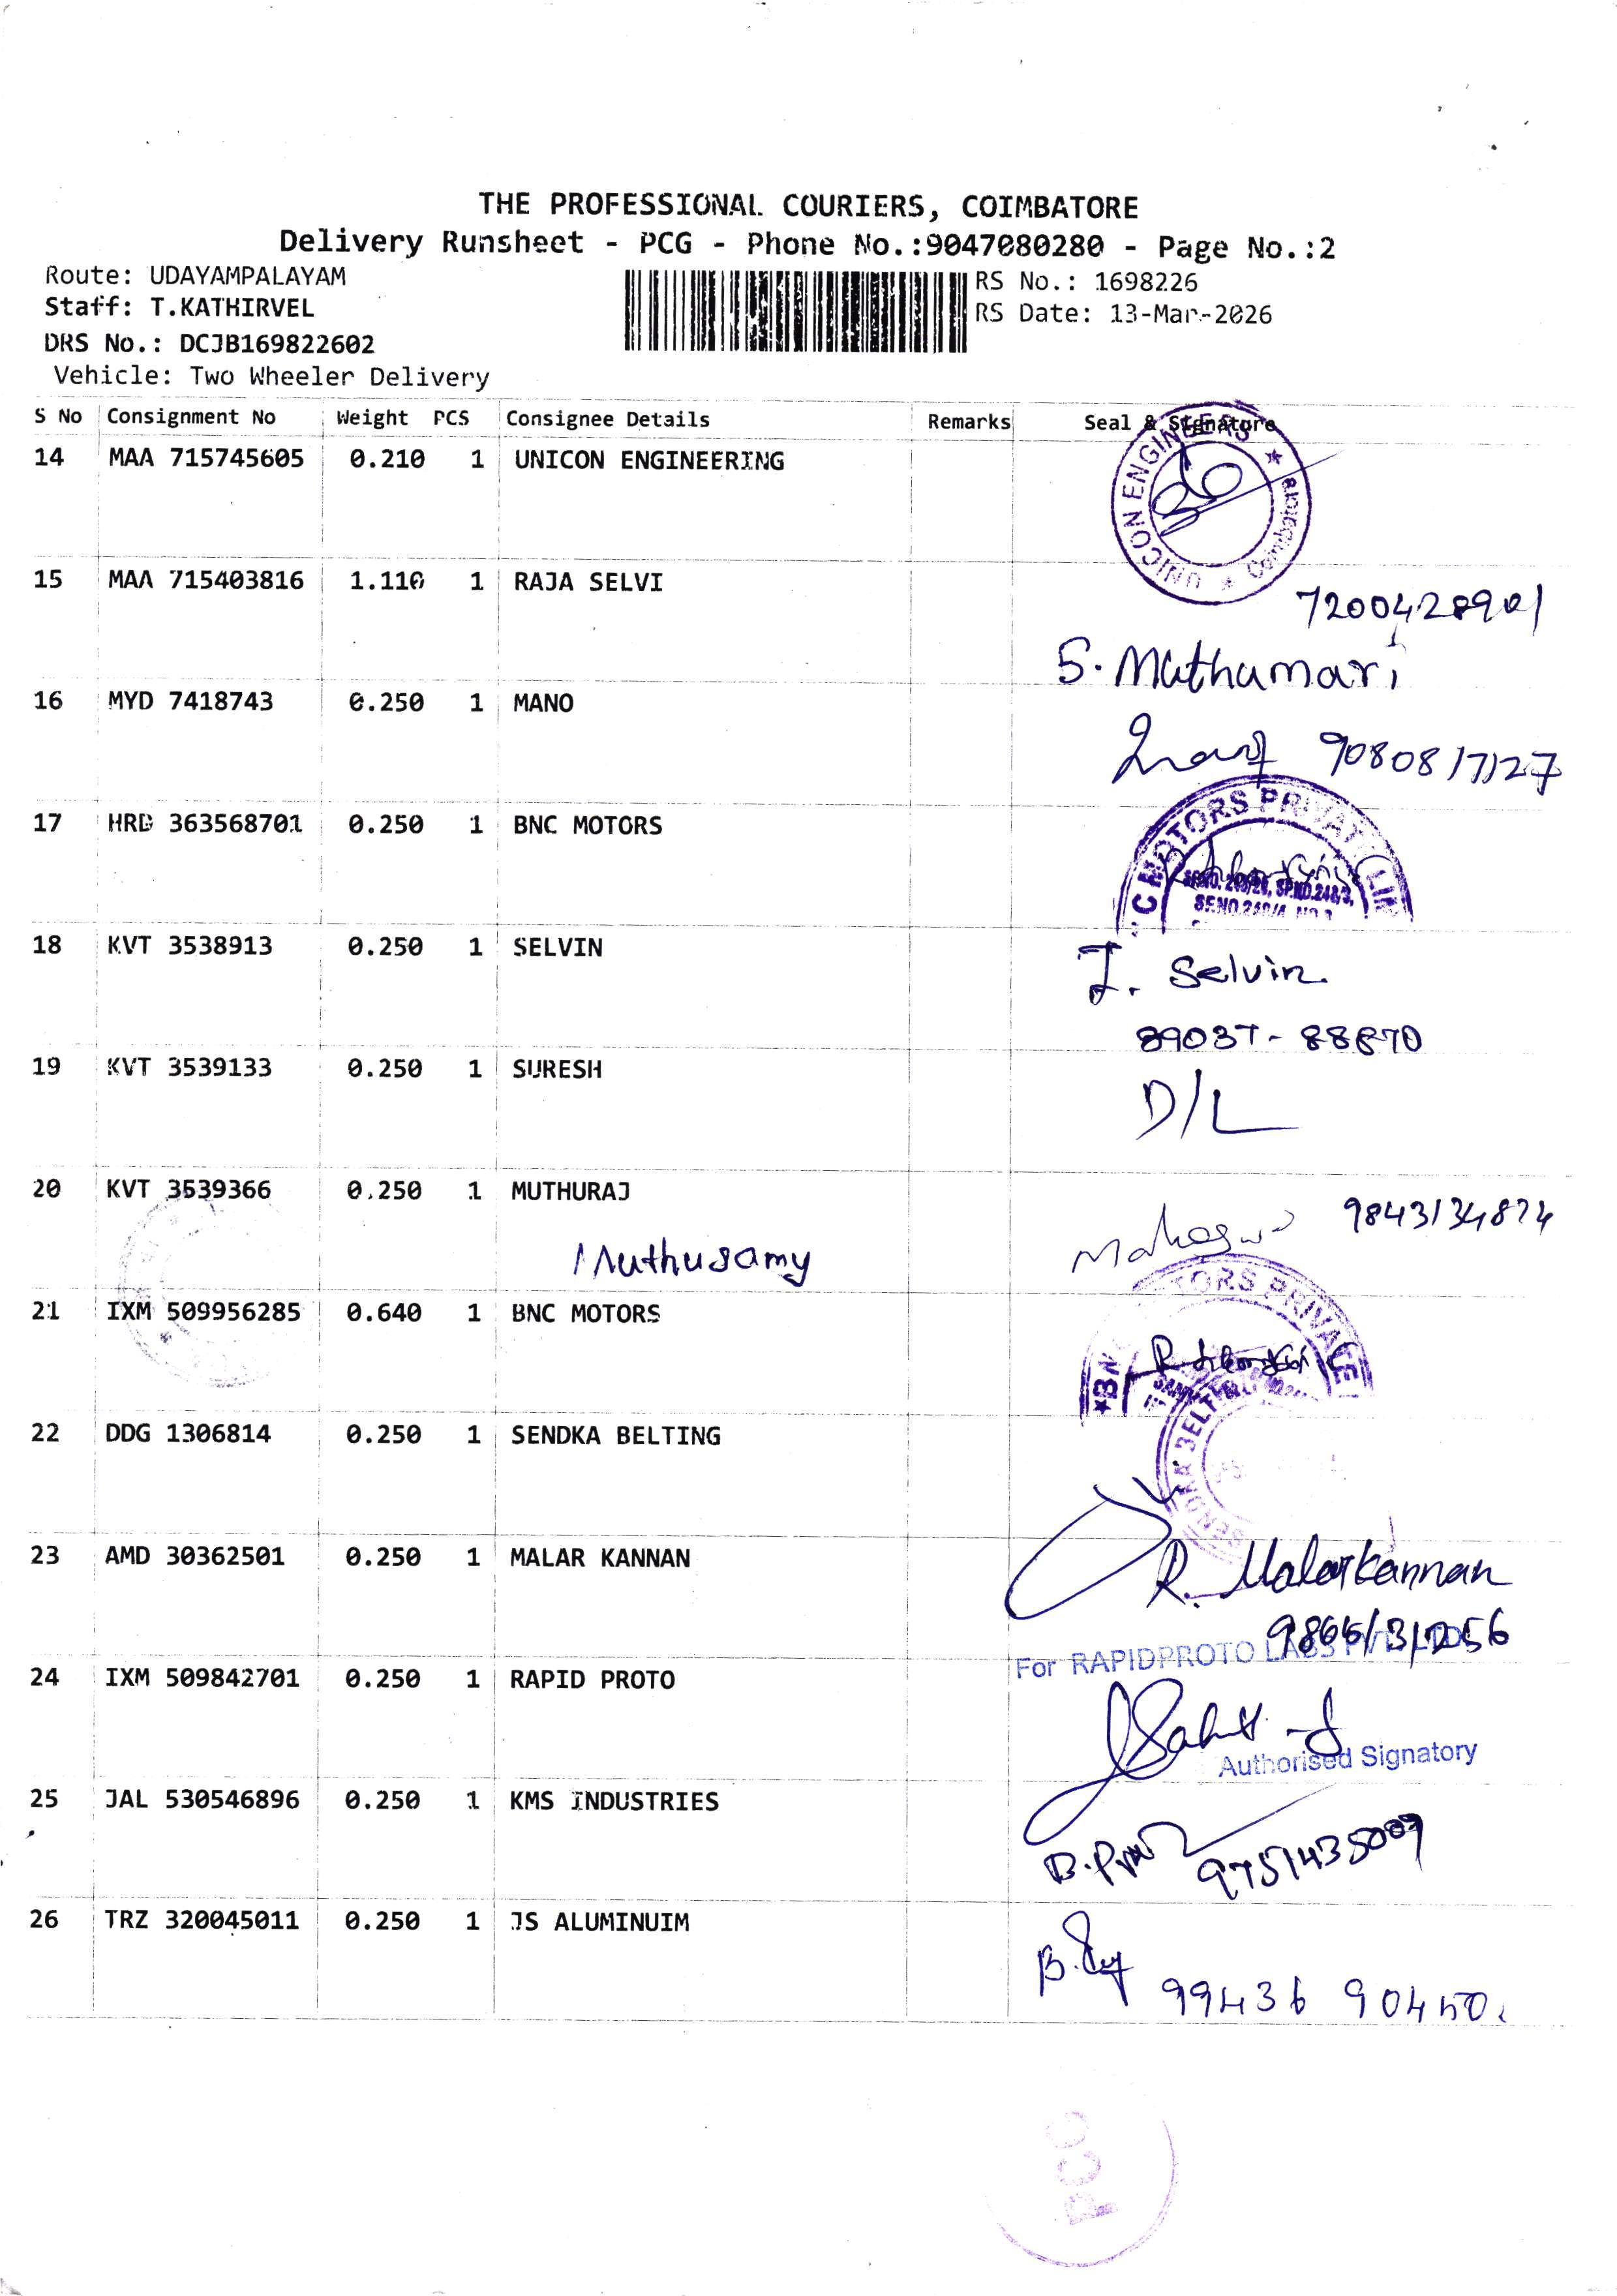 THE PROFESSIONAL COURIERS, COIMBATORE
Delivery Runsheet - PCG - Phone No.:9047080280 - Page No.:2
Route: UDAYAMPALAYAM
RS No.: 1698226
Staff: T.KATHIRVEL
RS Date: 13-Mar-2026
DRS No.: DCJB169822602
Vehicle: Two Wheeler Delivery
S No Consignment No Weight PCS Consignee Details Remarks Seal & Signature
14 MAA 715745605 0.210 1 UNICON ENGINEERING
UNICON ENGINEERS ★ Coimbatore ★
15 MAA 715403816 1.110 1 RAJA SELVI
7200428901
S. Muthumari
16 MYD 7418743 0.250 1 MANO
9080817127
17 HRD 363568701 0.250 1 BNC MOTORS
C MOTORS PRIVATE LIM
18 KVT 3538913 0.250 1 SELVIN
I. Selvin.
89037-88870
19 KVT 3539133 0.250 1 SURESH
D/L
20 KVT 3539366 0.250 1 MUTHURAJ
9843134874
Muthusamy
21 IXM 509956285 0.640 1 BNC MOTORS
★BN TORS PRIVATE
22 DDG 1306814 0.250 1 SENDKA BELTING
SENDKA BELT
23 AMD 30362501 0.250 1 MALAR KANNAN
R. Malarkannan
For RAPIDPROTO LABS PVT LTD
24 IXM 509842701 0.250 1 RAPID PROTO
Authorised Signatory
25 JAL 530546896 0.250 1 KMS INDUSTRIES
9751435009
26 TRZ 320045011 0.250 1 JS ALUMINUIM
99436 90450.
PCO